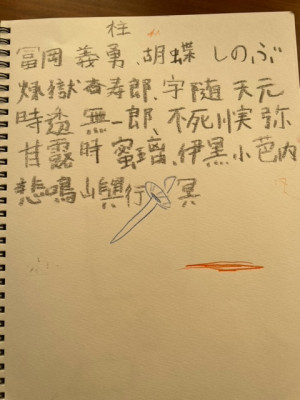 柱
冨岡 義勇、胡蝶 しのぶ
煉獄 杏寿郎、宇随 天元
時透 無一郎、不死川実弥
甘露時 蜜璃、伊黒小芭内
悲鳴山嶼行冥